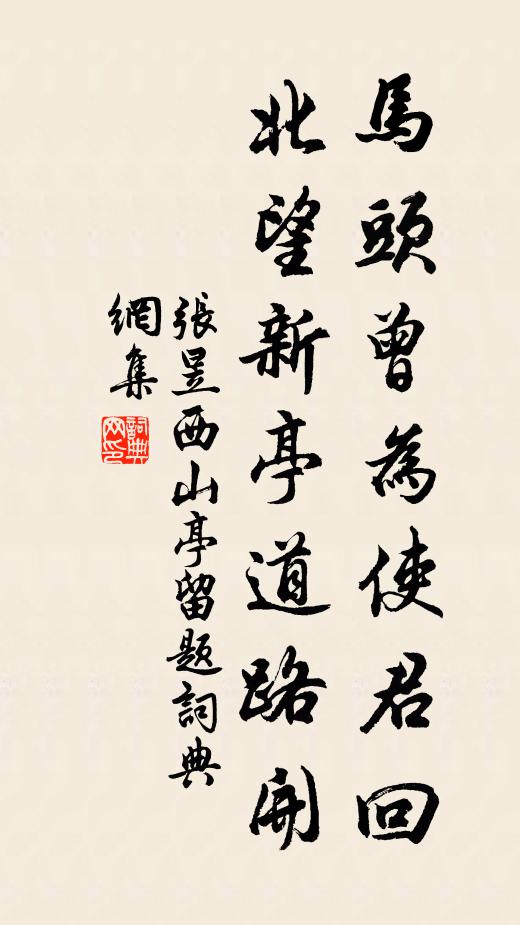 馬頭曾為使君回
北望新亭道路開
張昱西山亭留題詞典
網集
詞典網印